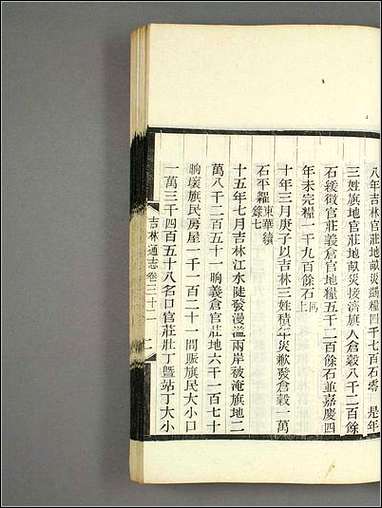 八年吉林官莊地畝災接濟旗人倉穀八千二百餘
三姓旗地官莊地畝災
石緩徵官莊義倉官地糧五千二百餘石並嘉慶四
年未完糧一千九百餘石同上
十年三月庚子以吉林三姓積年災歉發倉穀一萬
石平糶東華續錄七
十五年七月吉林江水陡發漫溢兩岸被淹旗地二
萬八千二百五十一晌義倉官莊地六千一百七十
晌壞旗民房屋一千一百二十一間賑旗民大小口
一萬三千四百五十八名口官莊壯丁暨站丁大小
吉林通志卷三十二